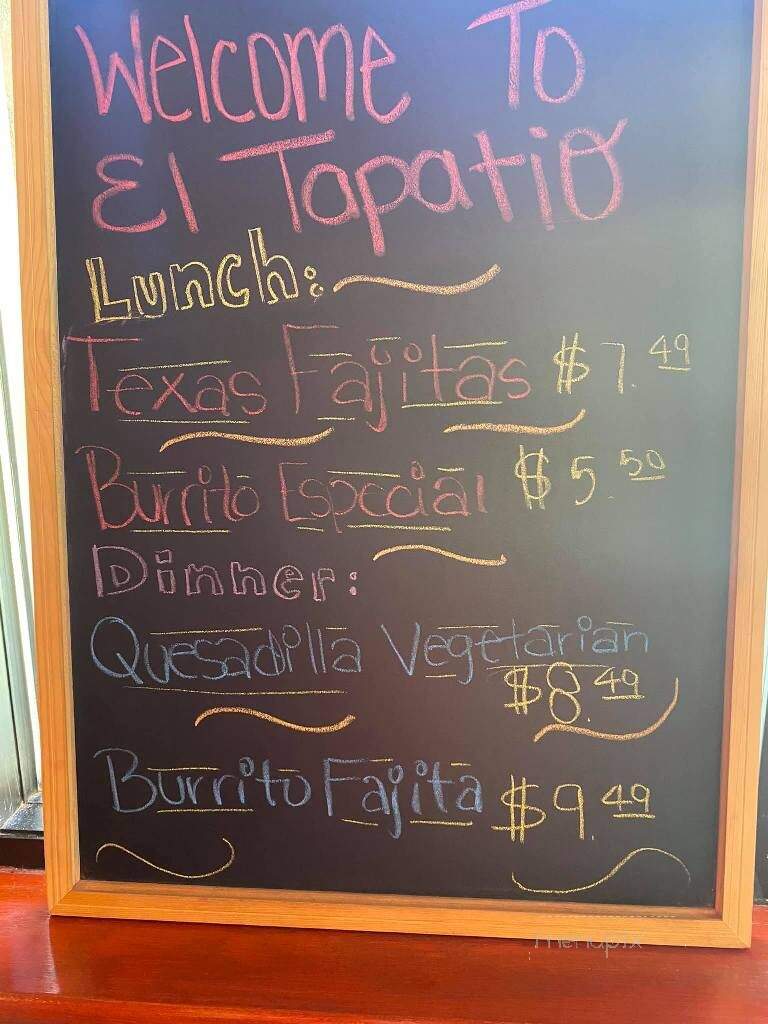 Welcome To
El Tapatio
Lunch:
Texas Fajitas $7.49
Burrito Especial $5.50
Dinner:
Quesadilla Vegetarian
$8.49
Burrito Fajita $9.49
menupix